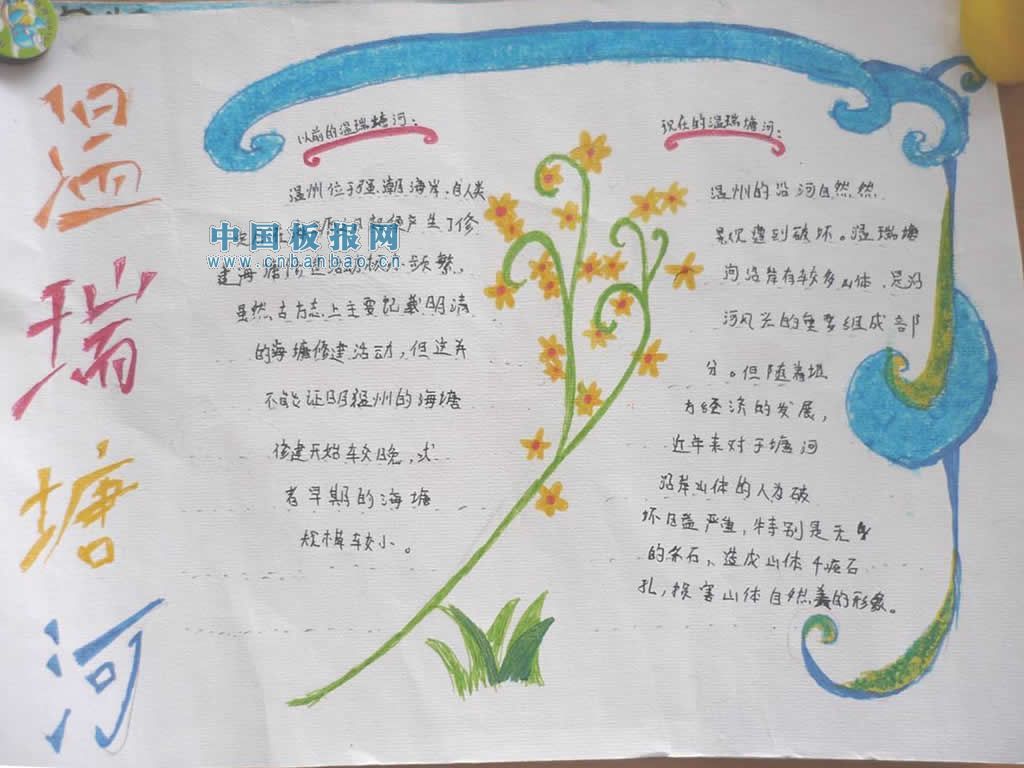 温
瑞
塘
河
以前的温瑞塘河：
温州位于强潮海岸，自人类
便产生了修
建海塘
频繁，
虽然古方志上主要记载明清
的海塘修建活动，但这并
不能证明温州的海塘
修建开始较晚，或
者早期的海塘
规模较小。
中国板报网
www.cnbanbao.cn
现在的温瑞塘河：
温州的沿河自然
景观遭到破坏。温瑞塘
河沿岸有较多山体，是沿
河风光的重要组成部
分。但随着地
方经济的发展，
近年来对于塘河
沿岸山体的人为破
坏日益严重，特别是无
的采石、造成山体千疮百
孔，损害山体自然美的形象。